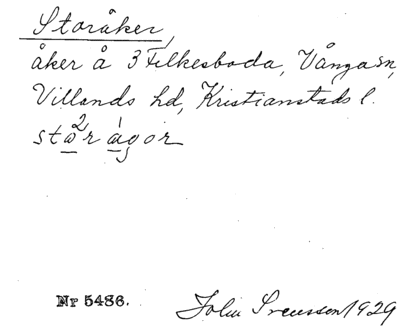 Storåker,
åker å 3 Filkesboda, Vånga sn,
Villands hd, Kristianstads l.
Nr 5486.
John Svensson 1929